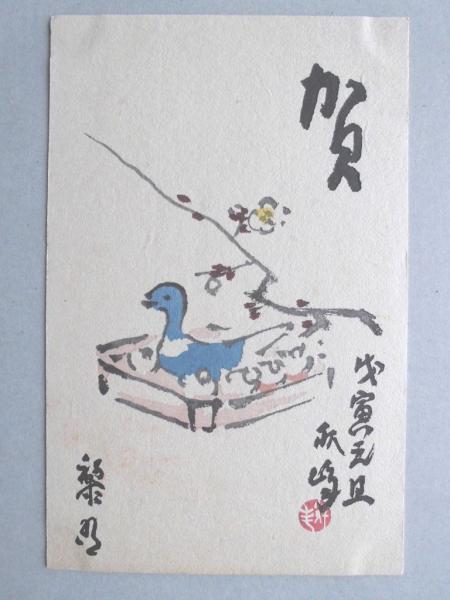 賀
戊寅元旦
秋峰
黎明